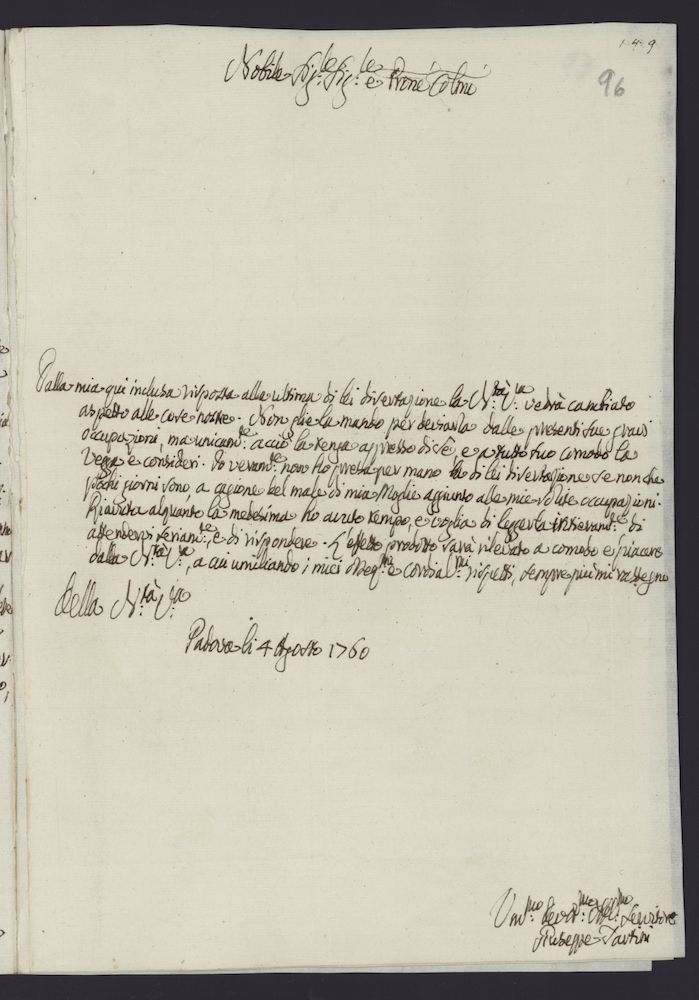 149
96
Nobile Sig.le Sig.le e Prone Colmo
Dalla mia qui inclusa risposta alla ultima di lei dissertazione la N.rà V.ra vedrà cambiato
aspetto alle cose nostre. Non glie la mando per deviarla dalle presenti sue gravi
occupazioni, ma unicam.te acciò la tenga appresso di sè, e a tutto suo comodo la
vegga e consideri. Io veram.te non ho presa per mano la di lei dissertazione se non che
pochi giorni sono, a cagione del male di mia Moglie aggiunto alle mie solite occupazioni.
Riavuta alquanto la medesima ho avuto tempo, e voglia di leggerla, di
attendervi seriam.te, e di rispondere. L'effetto prodotto sarà rilevato a comodo e piacere
dalla N.rà V.ra, a cui umiliando i miei osseq.mi e cordia.mi rispetti, sempre più mi rassegno
Della N.rà V.ra
Padova li 4 Agosto 1760
Um.mo Devot.mo Obbl.mo Servitore
Giuseppe Tartini